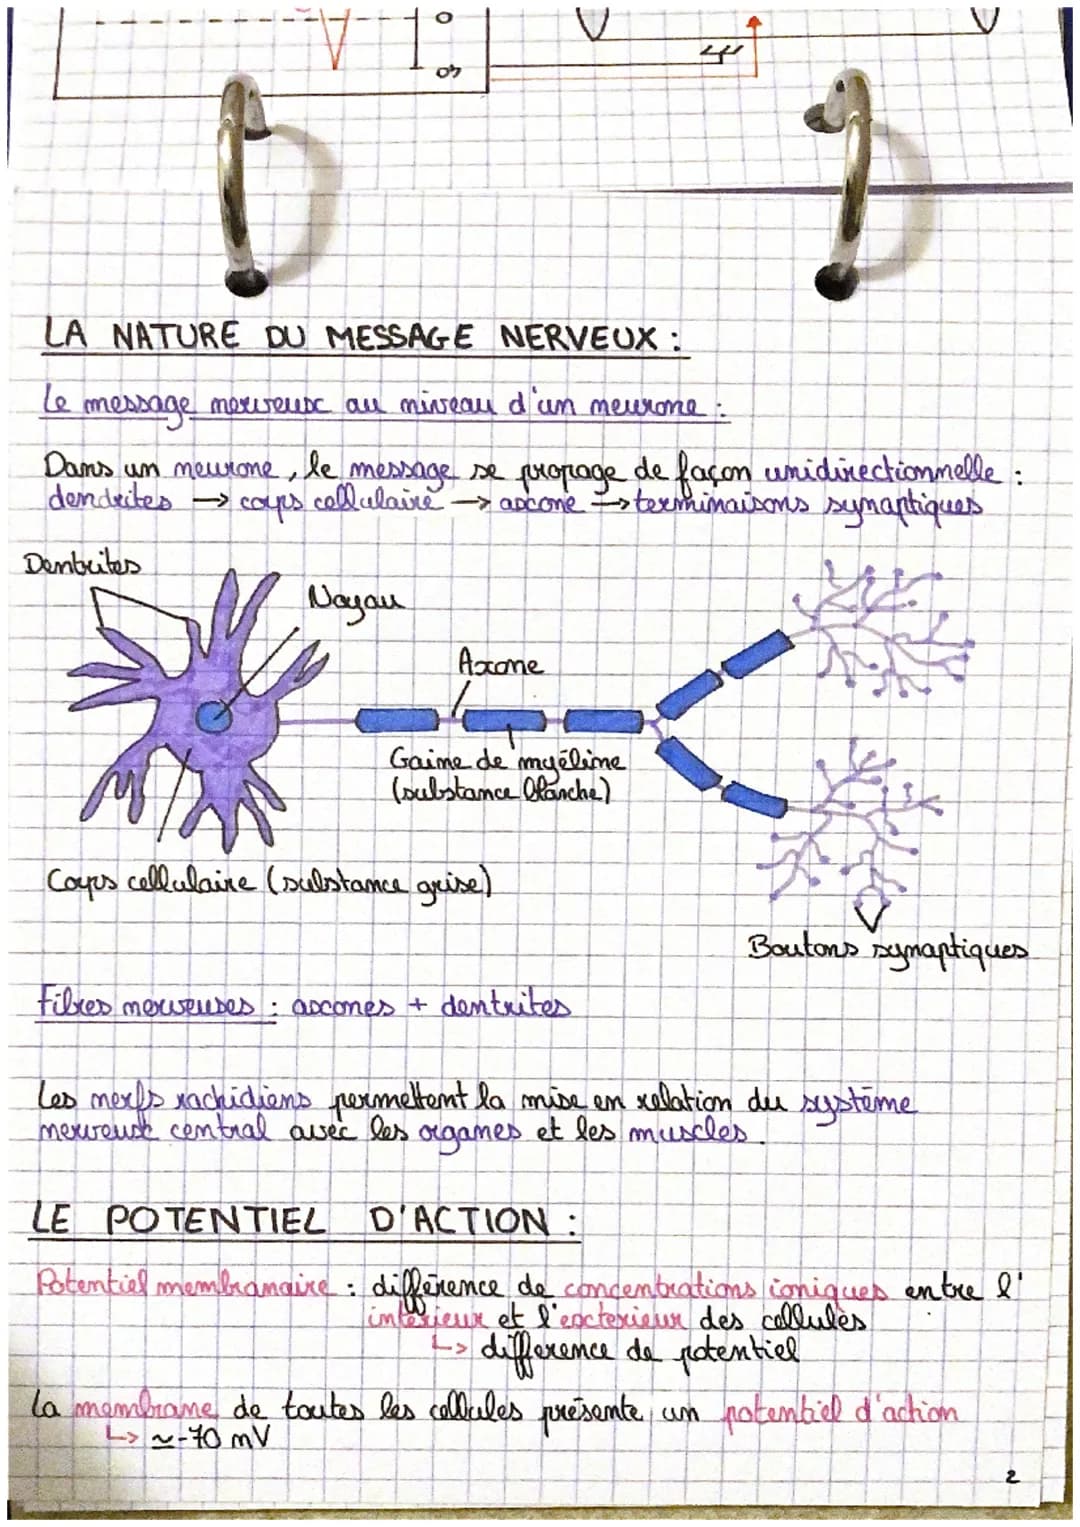 0
40
LA NATURE DU MESSAGE NERVEUX :
Le message nerveux au niveau d'un neurone :
Dans un neurone, le message se propage de façon unidirectionnelle :
dendrites → corps cellulaire → axone → terminaisons synaptiques
Dentrites
Noyau
Axone
Gaine de myéline
(substance blanche)
Corps cellulaire (substance grise)
Boutons synaptiques
Fibres nerveuses : axones + dentrites
Les nerfs rachidiens permettent la mise en relation du système
nerveux central avec les organes et les muscles.
LE POTENTIEL D'ACTION :
Potentiel membranaire : différence de concentrations ioniques entre l'
intérieur et l'exterieur des cellules
↳ différence de potentiel
La membrane de toutes les cellules présente un potentiel d'action
↳ ≃-70 mV
2